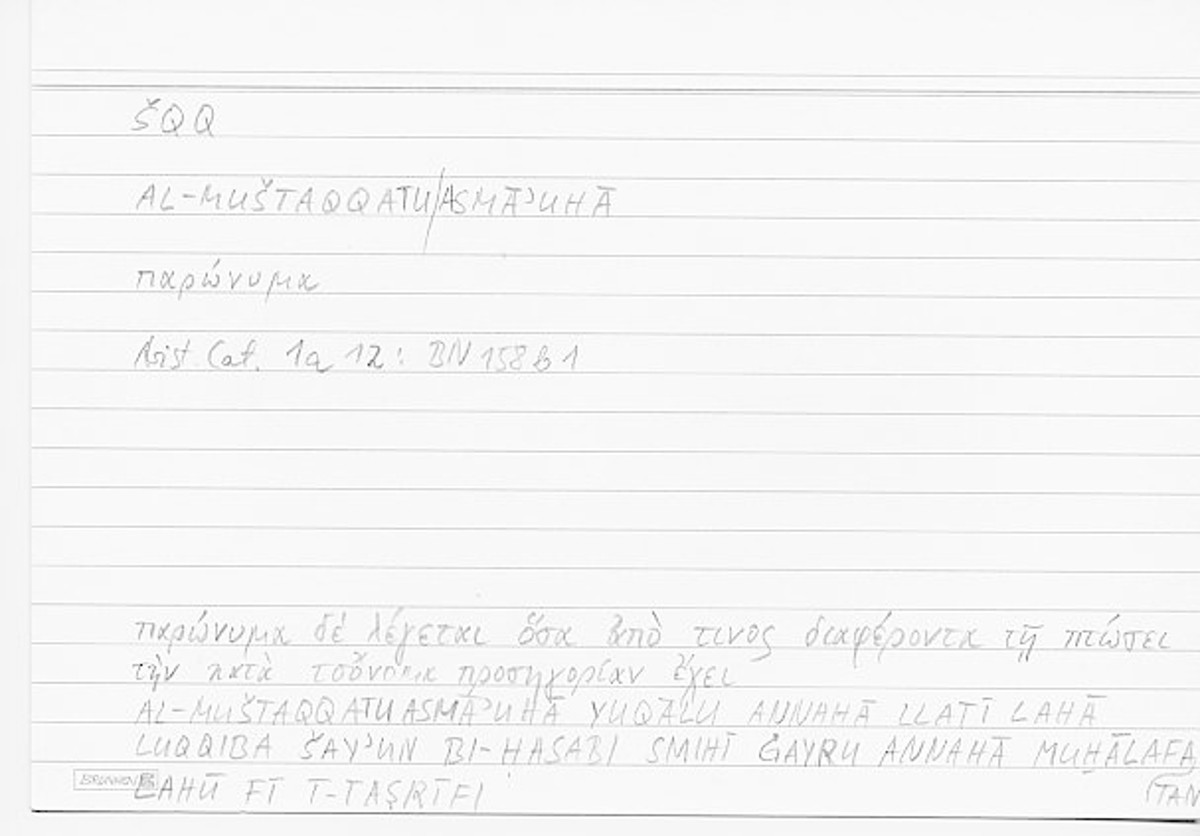 ŠQQ
AL-MUŠTAQQATU/ASMĀʾUHĀ
παρώνυμα
Arist. Cat. 1a 12: BN 158 b 1
παρώνυμα δὲ λέγεται ὅσα ἀπό τινος διαφέροντα τῇ πτώσει
τὴν κατὰ τοὔνομα προσηγορίαν ἔχει
AL-MUŠTAQQATU ASMĀʾUHĀ YUQĀLU ANNAHĀ LLATĪ LAHĀ
LUQQIBA ŠAYʾUN BI-ḤASABI SMIHĪ ĠAYRU ANNAHĀ MUḪĀLAFA
(TAN
BRUNNEN LAHŪ FĪ T-TAṢRĪFI